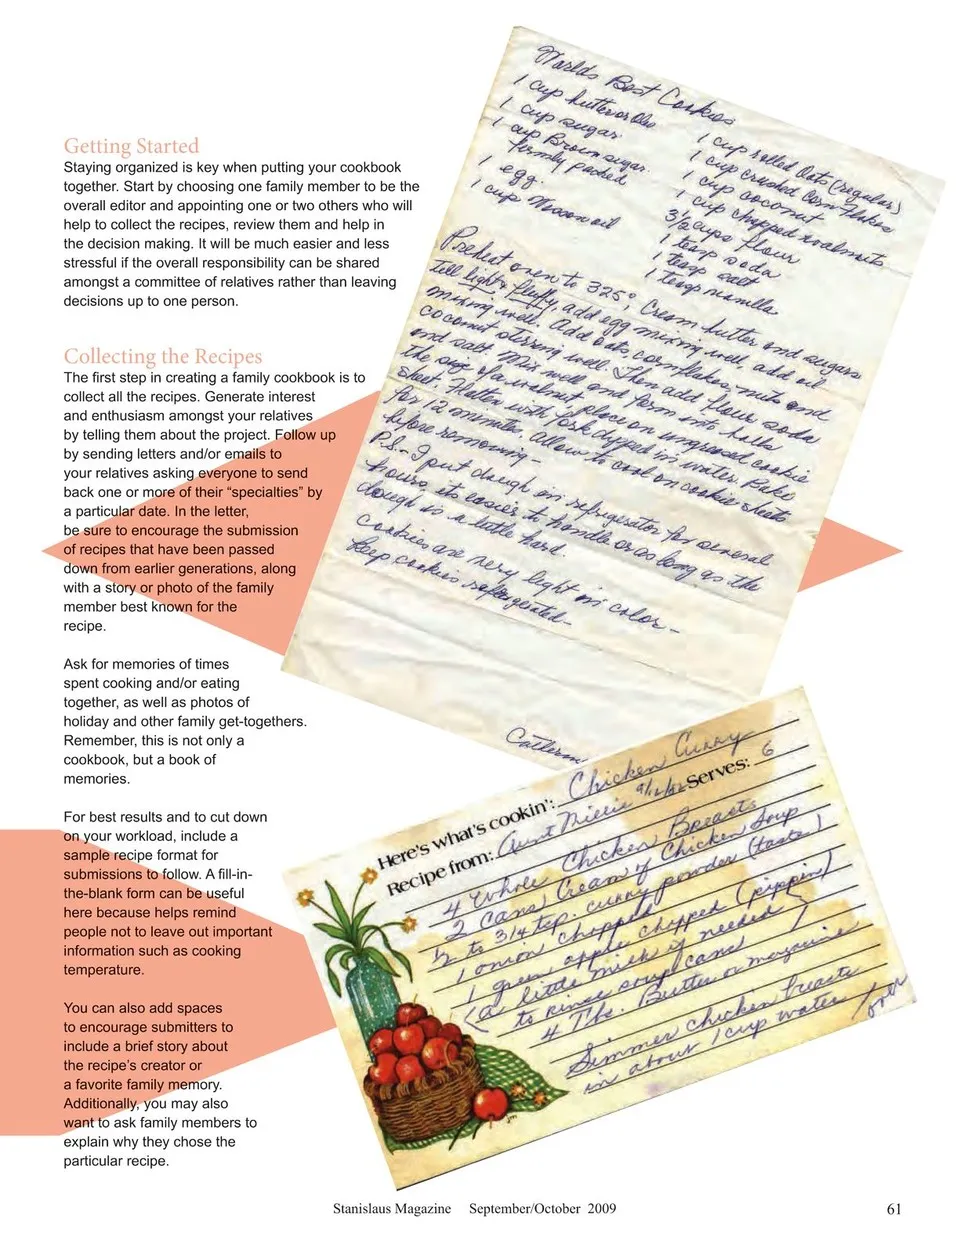 Getting Started
Staying organized is key when putting your cookbook
together. Start by choosing one family member to be the
overall editor and appointing one or two others who will
help to collect the recipes, review them and help in
the decision making. It will be much easier and less
stressful if the overall responsibility can be shared
amongst a committee of relatives rather than leaving
decisions up to one person.
Collecting the Recipes
The first step in creating a family cookbook is to
collect all the recipes. Generate interest
and enthusiasm amongst your relatives
by telling them about the project. Follow up
by sending letters and/or emails to
your relatives asking everyone to send
back one or more of their “specialties” by
a particular date. In the letter,
be sure to encourage the submission
of recipes that have been passed
down from earlier generations, along
with a story or photo of the family
member best known for the
recipe.
Ask for memories of times
spent cooking and/or eating
together, as well as photos of
holiday and other family get-togethers.
Remember, this is not only a
cookbook, but a book of
memories.
For best results and to cut down
on your workload, include a
sample recipe format for
submissions to follow. A fill-in-
the-blank form can be useful
here because helps remind
people not to leave out important
information such as cooking
temperature.
You can also add spaces
to encourage submitters to
include a brief story about
the recipe’s creator or
a favorite family memory.
Additionally, you may also
want to ask family members to
explain why they chose the
particular recipe.
Worlds Best Cookies
1 cup butter or oleo
1 cup sugar
1 cup Brown sugar
firmly packed
1 egg.
1 cup Wesson oil
1 cup rolled oats (regular)
1 cup crushed Corn flakes
1 cup coconut
1 cup chopped walnuts
3½ cups flour
1 teasp soda
1 teasp salt
1 teasp vanilla
Preheat oven to 325°, Cream butter and sugars
till light & fluffy, add egg mixing well, add oil
mixing well. Add oats, corn flakes, nuts and
coconut stirring well. Then add flour, soda
and salt. Mix well and form into balls
the size of a walnut place on ungreased cookie
sheet. Flatten with fork dipped in water. Bake
for 12 minutes. Allow to cool on cookie sheets
before removing -
P.S.- I put dough in refrigerator for several
hours, its easier to handle or as long as the
dough is a little hard.
Cookies are very light in color -
Keep cookies refrigerated -
Here's what's cookin': Chicken Curry
Recipe from: Aunt Millie 9/12/82 Serves: 6
4 Whole Chicken Breasts
2 Cans Cream of Chicken Soup
½ to 3/4 tsp. curry powder (taste)
1 onion chopped
1 green apple chopped (pippin)
(a little milk if needed
to rinse soup cans)
4 Tbs. Butter or margarine
Simmer chicken breasts
in about 1 cup water
Stanislaus Magazine September/October 2009
61